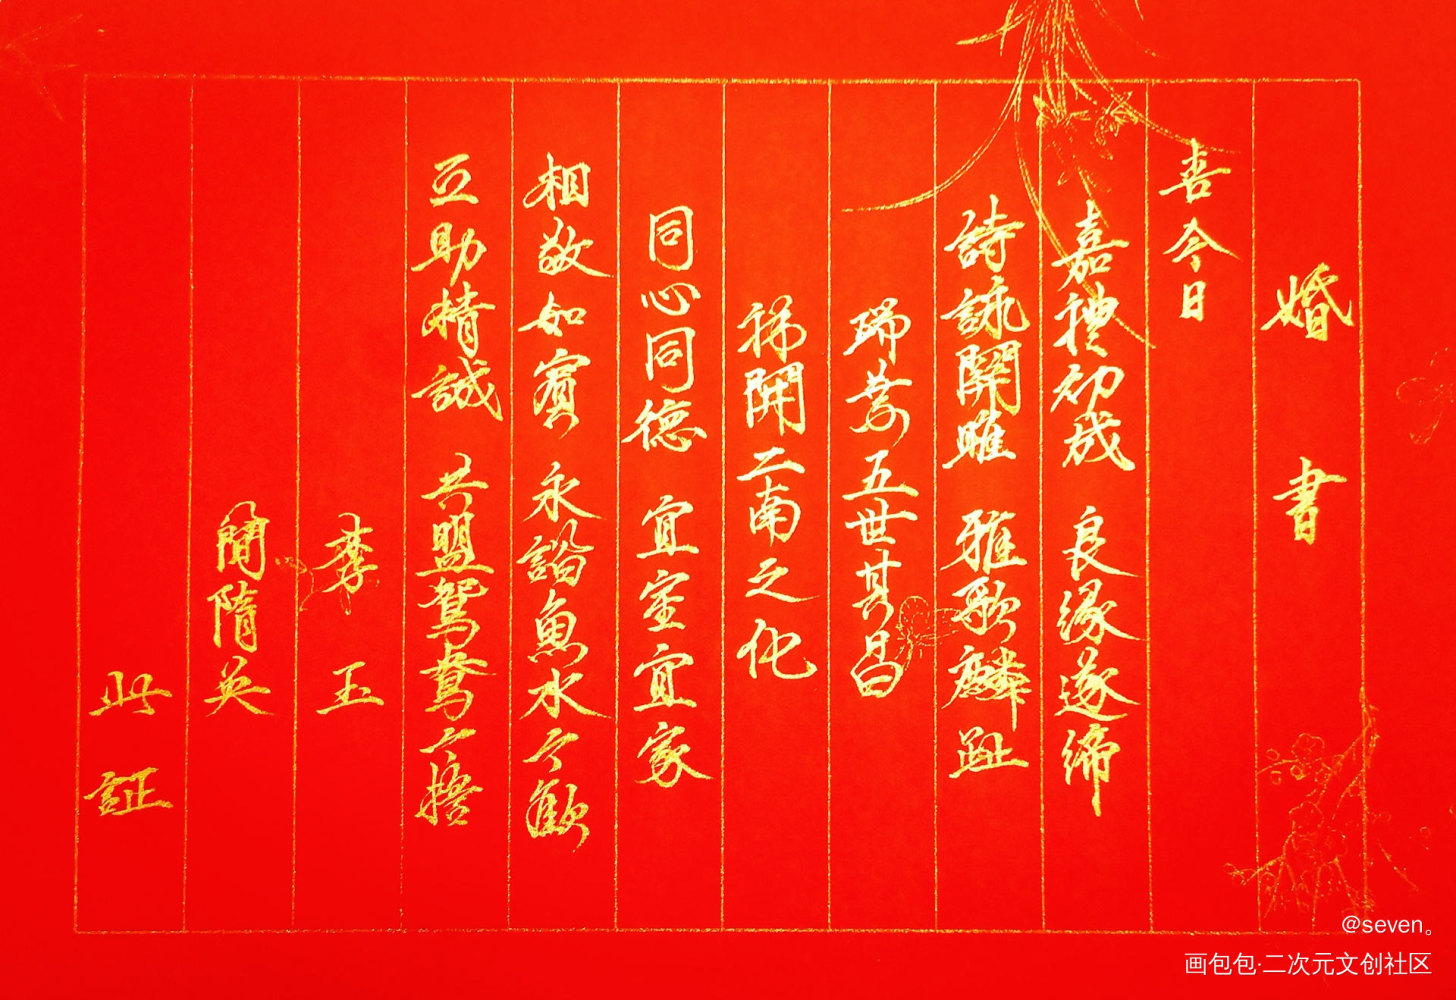 婚書
喜今日
嘉禮初成 良緣遂締
詩詠關雎 雅歌麟趾
瑞葉五世其昌
祥開二南之化
同心同德 宜室宜家
相敬如賓 永諧魚水之歡
互助精誠 共盟鴛鴦之誓
李玉
簡隋英
此証
@seven。
画包包·二次元文创社区